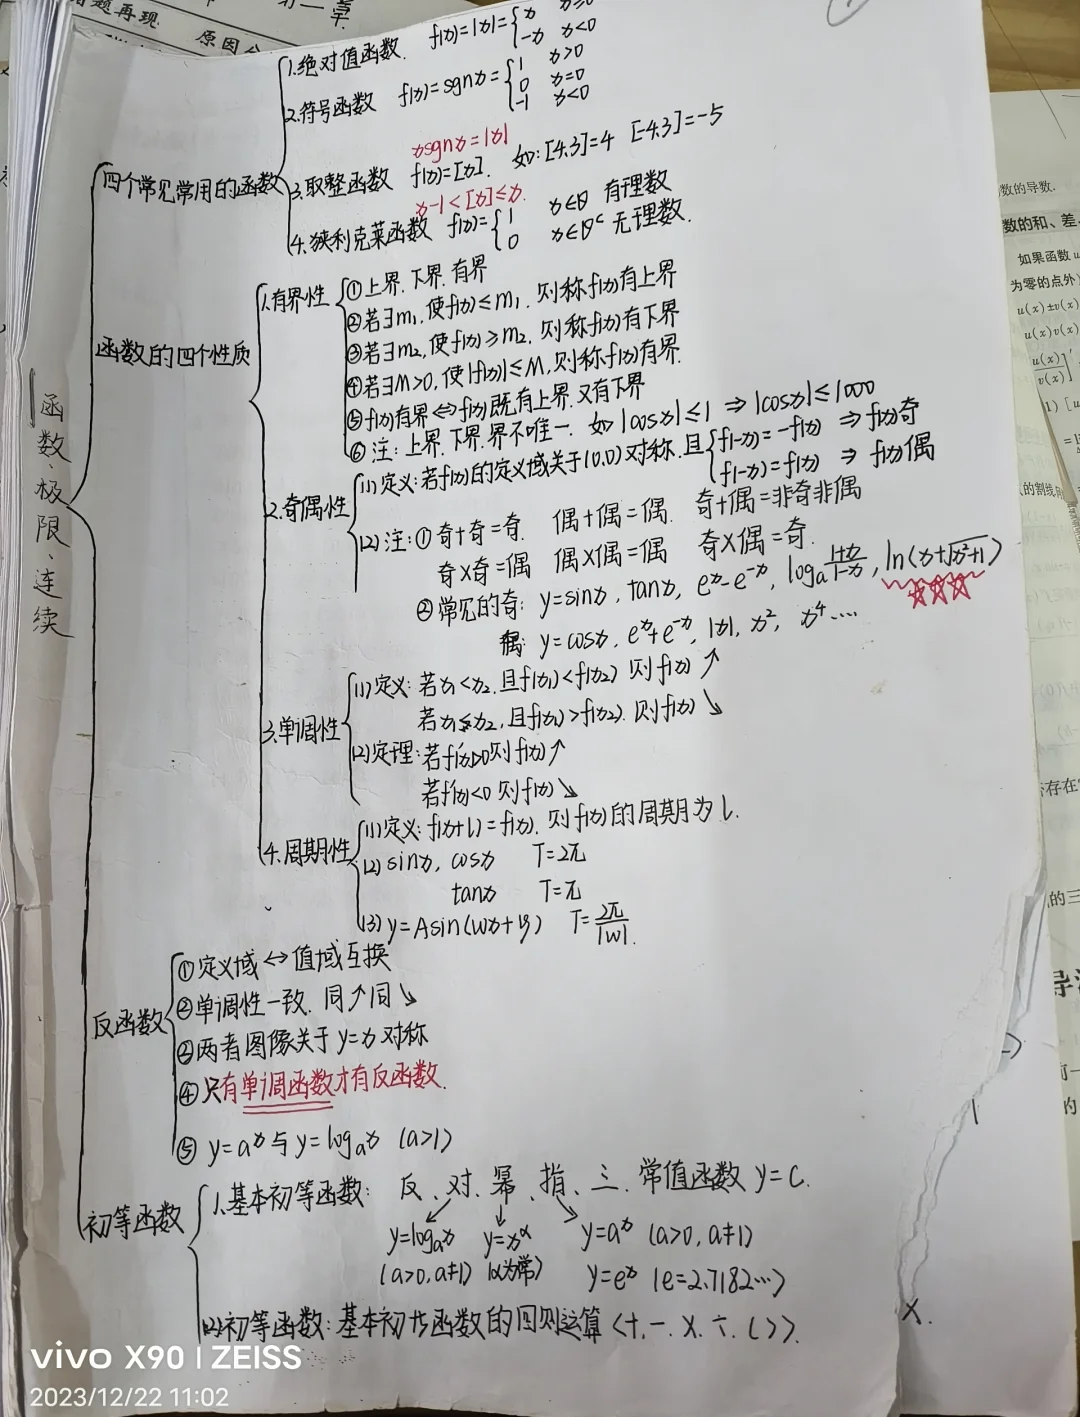 题再现 原因分
第一章
函数、极限、连续
四个常见常用的函数
1.绝对值函数. f(x)=|x|={x x≥0
-x x<0
2.符号函数 f(x)=sgnx={1 x>0
0 x=0
-1 x<0
xsgnx=|x|
3.取整函数 f(x)=[x]. 如:[4.3]=4 [-4.3]=-5
x-1<[x]≤x.
4.狭利克莱函数 f(x)={1 x∈Q 有理数
0 x∈Qᶜ 无理数.
函数的四个性质
1.有界性
①上界.下界.有界
②若∃m₁,使f(x)≤m₁,则称f(x)有上界
③若∃m₂,使f(x)≥m₂,则称f(x)有下界
④若∃M>0,使|f(x)|≤M,则称f(x)有界.
⑤f(x)有界⇔f(x)既有上界.又有下界
⑥注:上界.下界.界不唯一.如|cosx|≤1⇒|cosx|≤1000
2.奇偶性
(1)定义:若f(x)的定义域关于(0,0)对称.且{f(-x)=-f(x)⇒f(x)奇
f(-x)=f(x)⇒f(x)偶
(2)注:①奇+奇=奇. 偶+偶=偶. 奇+偶=非奇非偶
奇×奇=偶 偶×偶=偶 奇×偶=奇.
②常见的奇:y=sinx,tanx,eˣ-e⁻ˣ,logₐ(1+x)/(1-x),ln(x+√(x²+1))
☆☆☆
偶:y=cosx,eˣ+e⁻ˣ,|x|,x²,x⁴....
3.单调性
(1)定义:若x₁<x₂.且f(x₁)<f(x₂)则f(x)↗
若x₁≤x₂,且f(x₁)>f(x₂).则f(x)↘
(2)定理:若f'(x)>0则f(x)↗
若f'(x)<0则f(x)↘
4.周期性
(1)定义:f(x+l)=f(x).则f(x)的周期为l.
(2)sinx,cosx T=2π
tanx T=π
(3)y=Asin(wx+φ) T=2π/|w|.
反函数
①定义域⇔值域互换
②单调性一致.同↗同↘
③两者图像关于y=x对称
④只有单调函数才有反函数.
⑤y=aˣ与y=logₐx (a>1)
初等函数
1.基本初等函数: 反、对、幂、指、三.常值函数y=C.
y=logₐx y=x^α y=aˣ (a>0,a≠1)
(a>0,a≠1) (α为常) y=eˣ (e=2.7182...)
(2)初等函数:基本初等函数的四则运算<+.-.×.÷.()>.
数的导数.
数的和、差
如果函数u
为零的点外)
u(x)±v(x)
u(x)v(x)
u(x)/v(x)]'
1) [u
的割线
存在
的三
导
的
x.
vivo X90 | ZEISS
2023/12/22 11:02